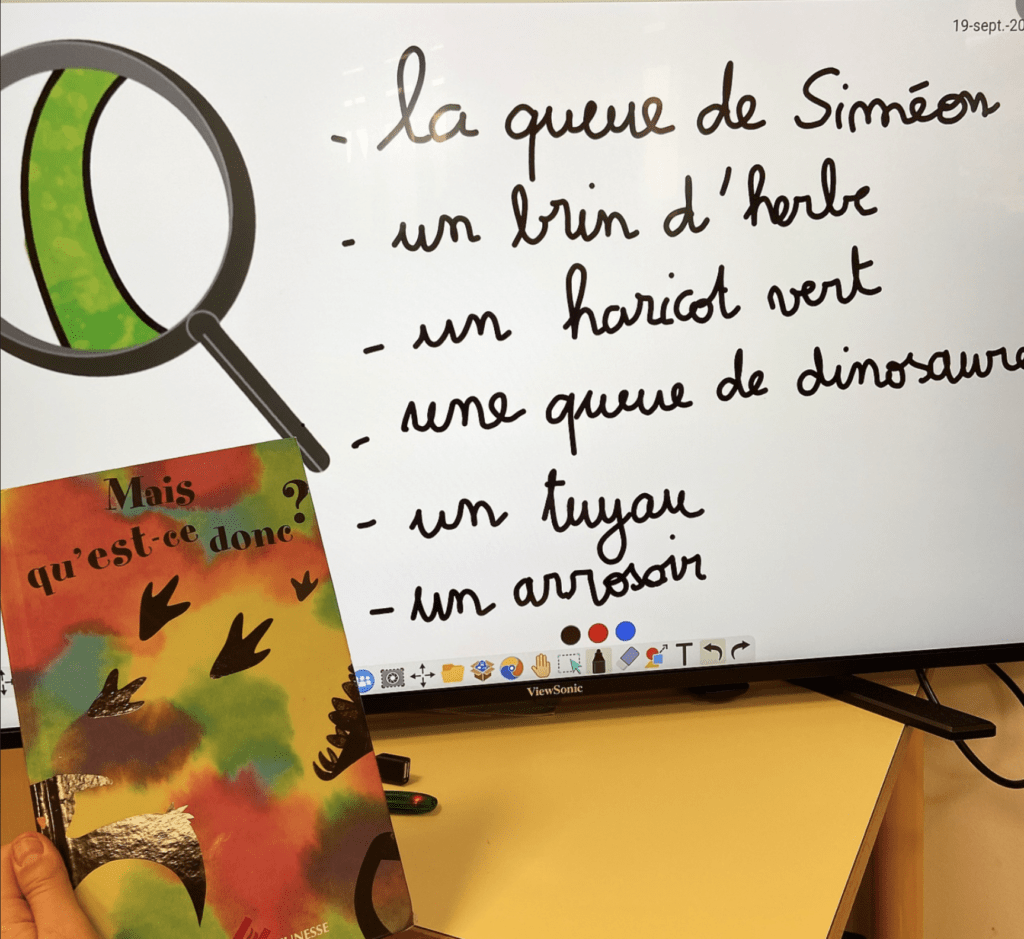 19-sept.-20
- la queue de Siméon
- un brin d'herbe
- un haricot vert
- une queue de dinosaure
- un tuyau
- un arrosoir
T
ViewSonic
Mais
qu'est-ce donc ?